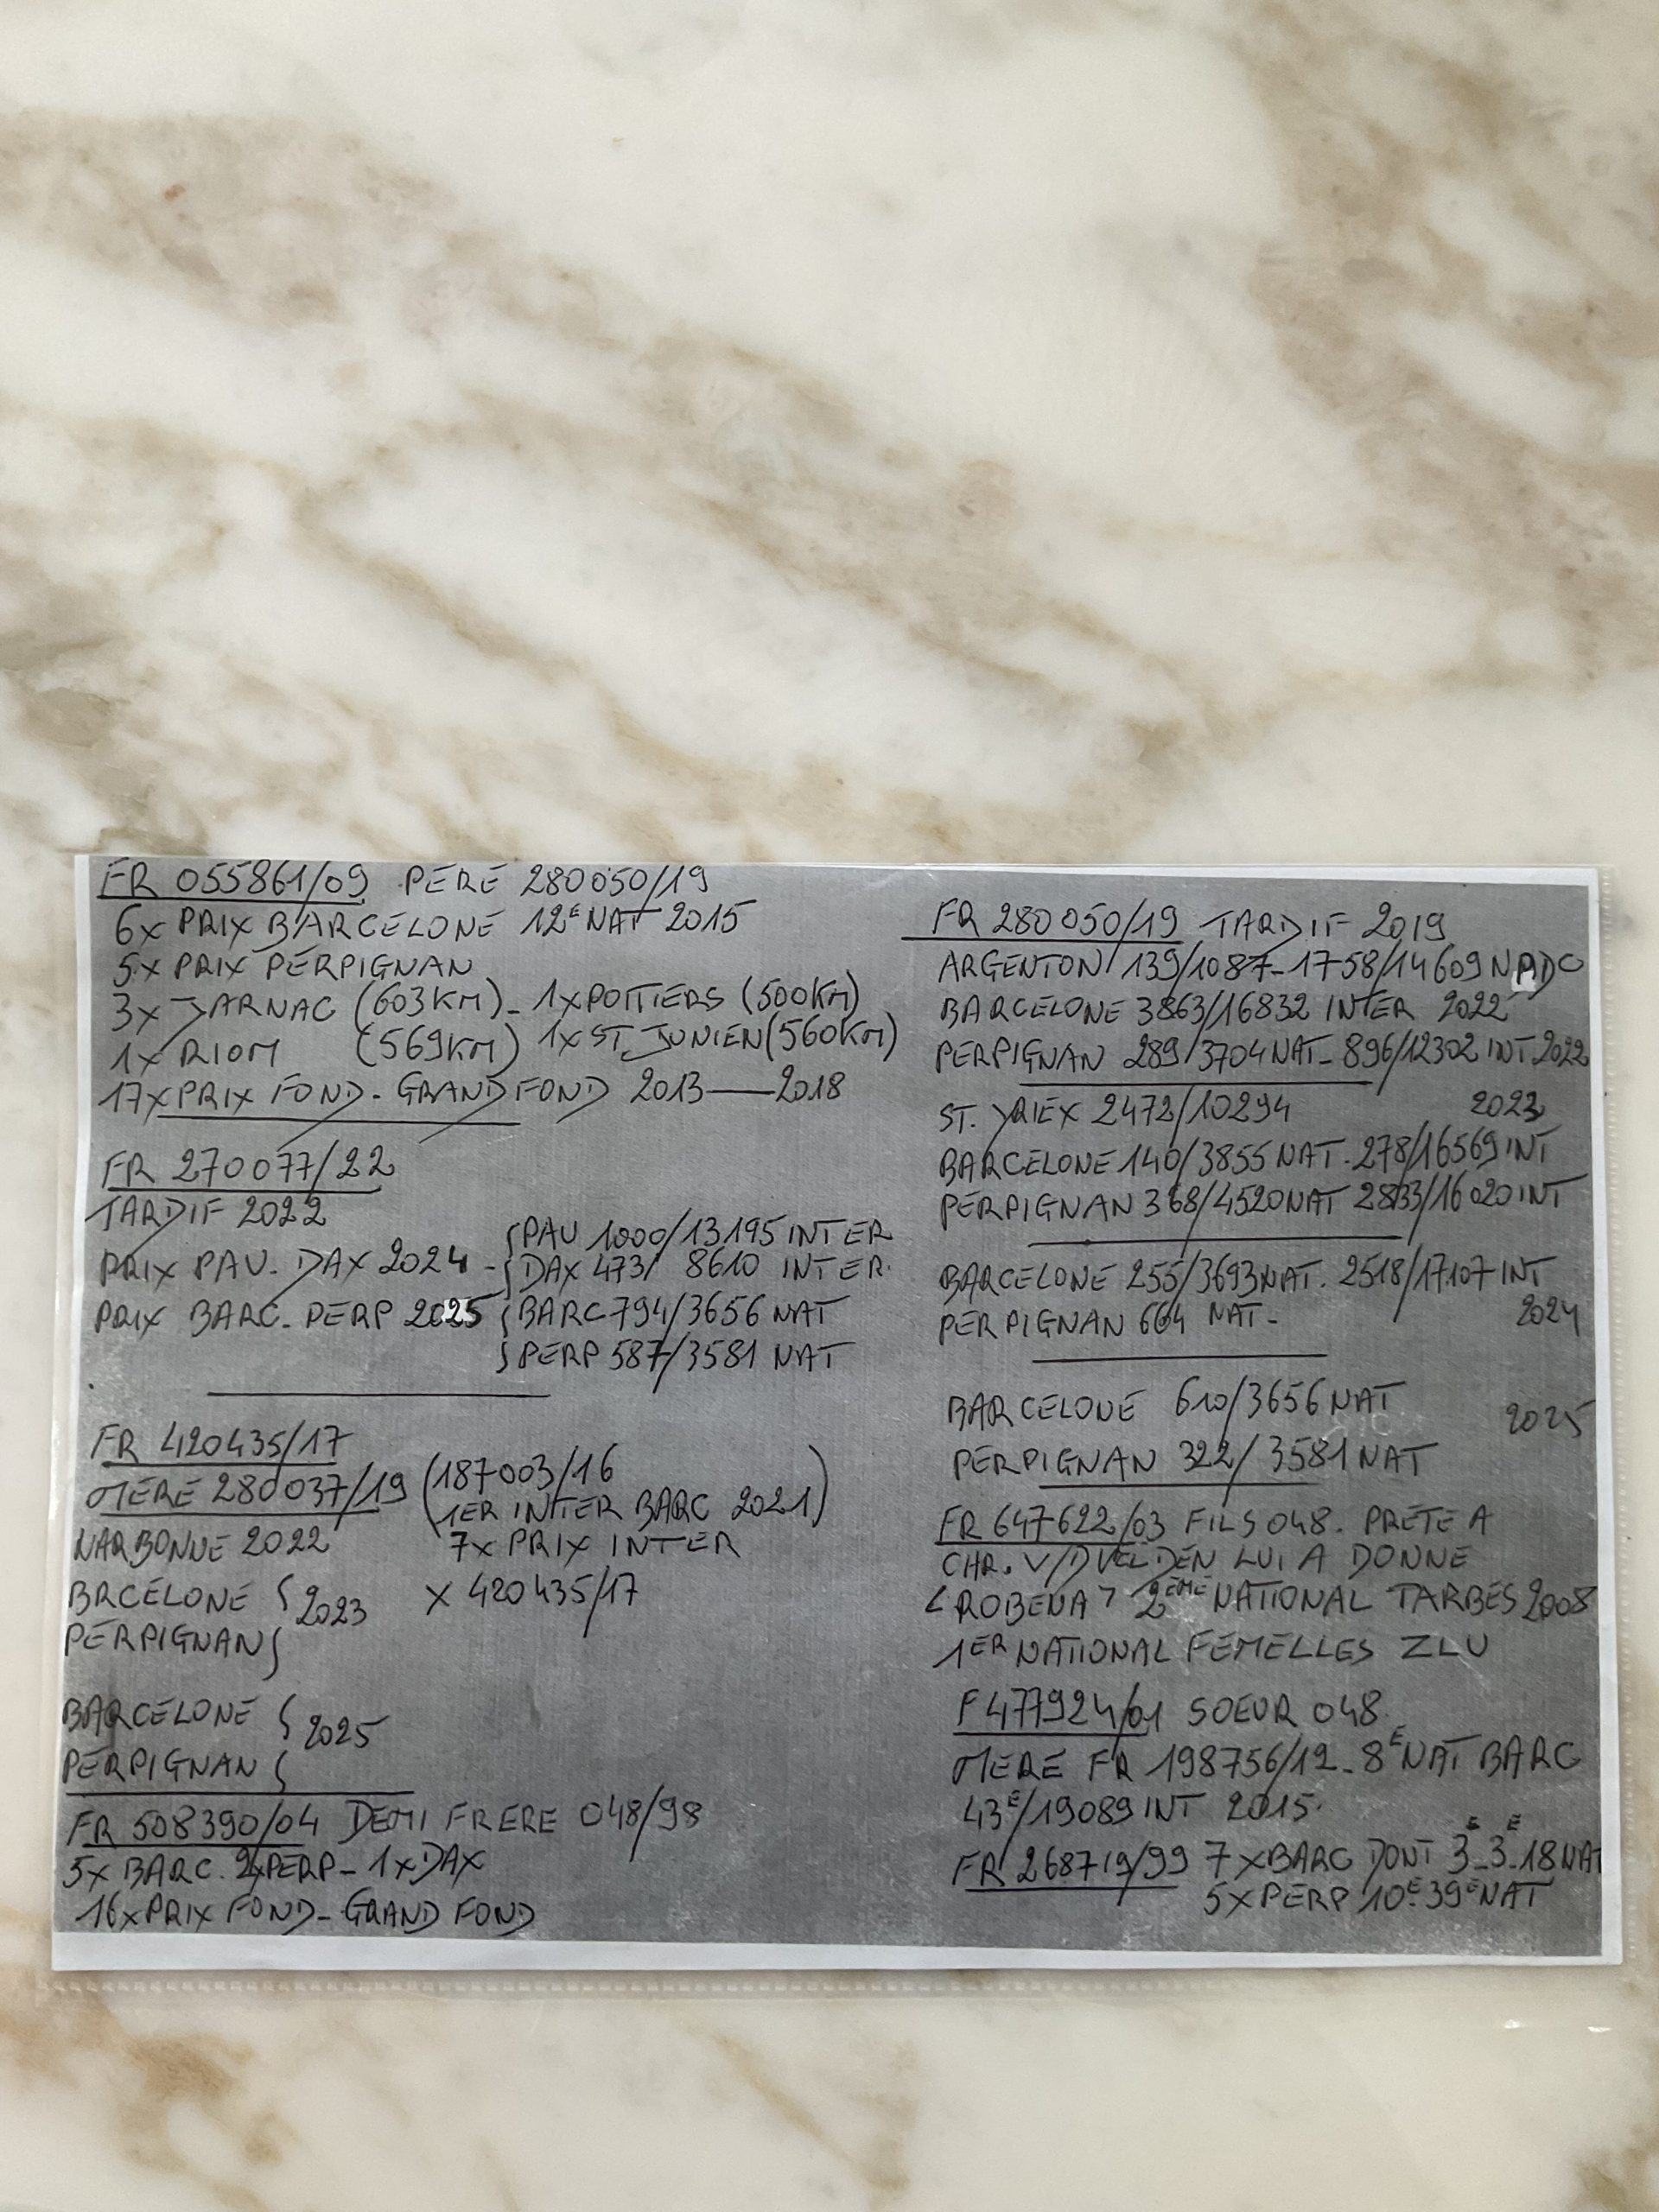 FR 055861/09 PERE 280050/19
6x PRIX BARCELONE 12E NAT 2015
5x PRIX PERPIGNAN
3x JARNAC (603KM)_ 1xPOITIERS (500KM)
1x RIOM (569KM) 1xST JUNIEN(560KM)
17xPRIX FOND - GRAND FOND 2013—2018
FR 270077/22
TARDIF 2022
PRIX PAV. DAX 2024 - { PAU 1000/13195 INTER
{ DAX 473/ 8610 INTER.
PRIX BARC_ PERP 2025 { BARC 794/3656 NAT
{ PERP 587/3581 NAT
FR 420435/17
MERE 280037/19 (187003/16
1ER INTER BARC 2021)
NARBONNE 2022 7x PRIX INTER
BRCELONE { 2023 X 420435/17
PERPIGNAN {
BARCELONE { 2025
PERPIGNAN {
FR 508390/04 DEMI FRERE 048/98
5x BARC. 2xPERP_ 1xDAX
16xPRIX FOND_ GRAND FOND
FR 280050/19 TARDIF 2019
ARGENTON 139/1087_1758/14609 NPDC
BARCELONE 3863/16832 INTER 2022
PERPIGNAN 289/3704 NAT_ 896/12302 INT 2022
ST. YRIEX 2472/10294 2023
BARCELONE 140/3855 NAT. 278/16569 INT
PERPIGNAN 368/4520 NAT 2833/16020 INT
BARCELONE 255/3693 NAT. 2518/17107 INT
PERPIGNAN 664 NAT_ 2024
BARCELONE 610/3656 NAT 2025
PERPIGNAN 322/3581 NAT
FR 647622/03 FILS 048. PRETE A
CHR. V/D VELDEN LUI A DONNE
< ROBENA > 2EME NATIONAL TARBES 2008
1ER NATIONAL FEMELLES ZLU
F 477924/01 SOEUR 048
MERE FR 198756/12_ 8E NAT BARC
43E/19089 INT 2015.
FR 268719/99 7xBARC DONT 3E_3E_18 NAT
5xPERP 10E 39E NAT